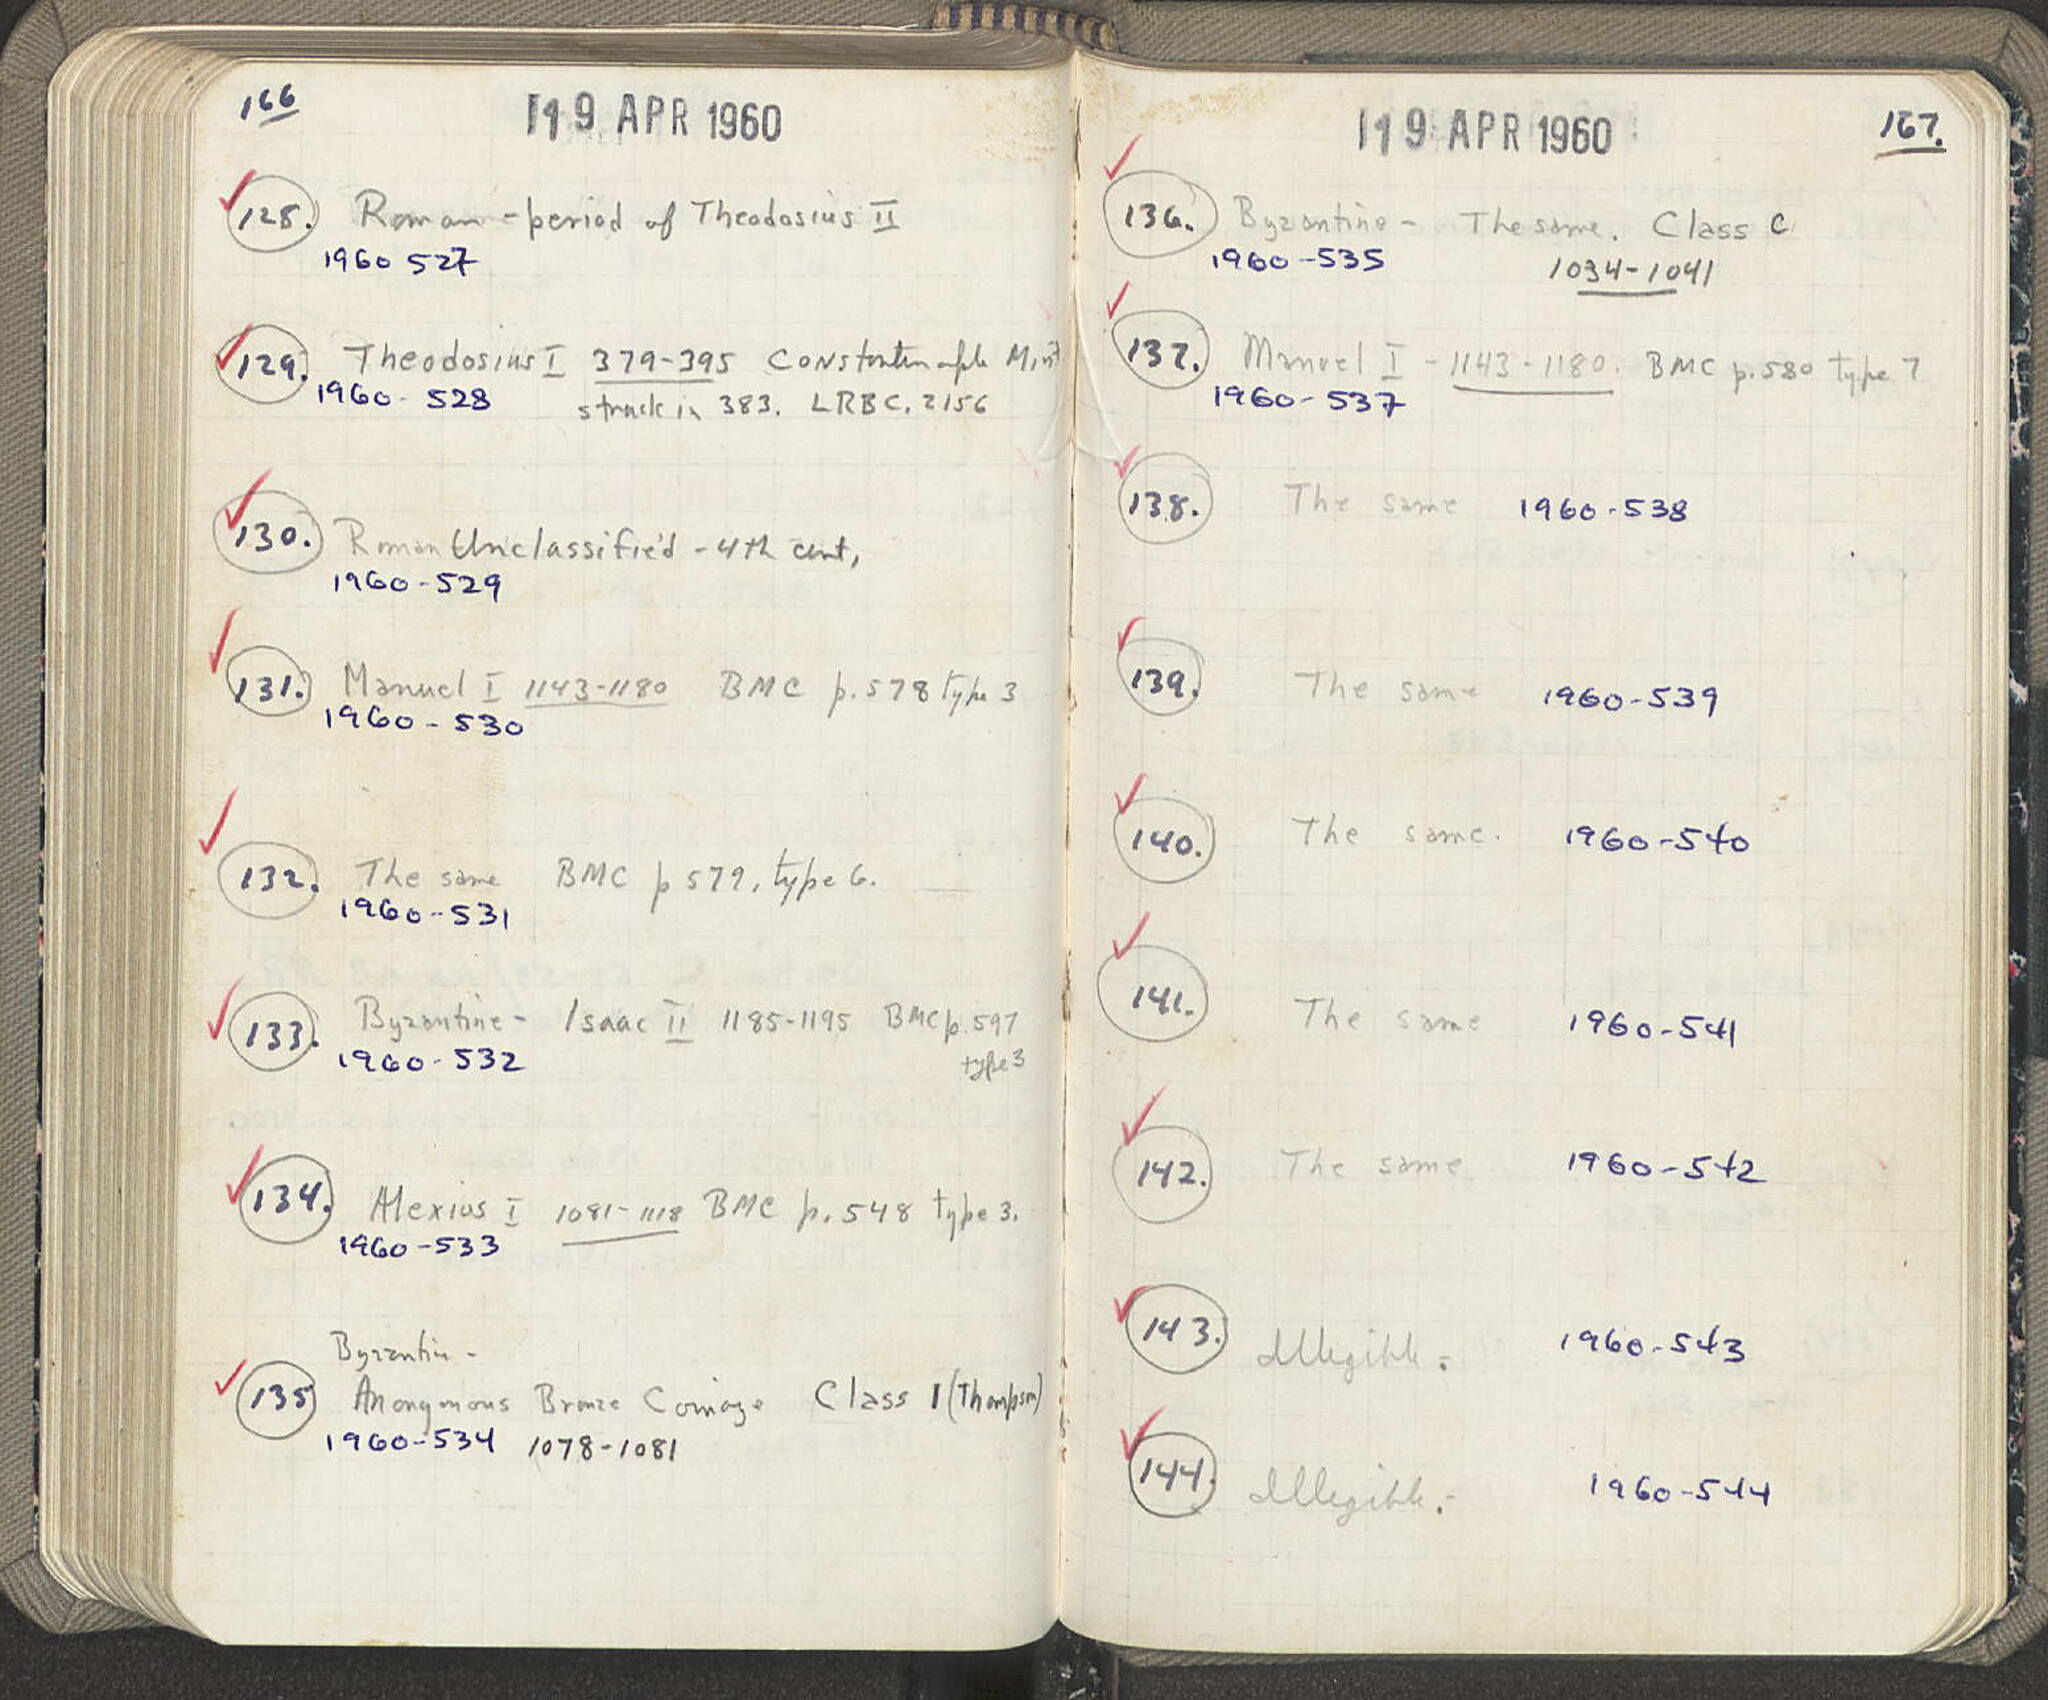 166
19 APR 1960
128. Roman - period of Theodosius II
1960 527
129. Theodosius I 379-395 Constantinople Mint
1960-528 struck in 383. LRBC. 2156
130. Roman Unclassified - 4th cent,
1960-529
131. Manuel I 1143-1180 BMC p. 578 type 3
1960-530
132. The same BMC p 579, type 6.
1960-531
133. Byzantine - Isaac II 1185-1195 BMC p. 597
type 3
1960-532
134. Alexius I 1081-1118 BMC p. 548 type 3.
1960-533
Byzantine -
135 Anonymous Bronze Coinage Class I (Thompson)
1960-534 1078-1081
167.
19 APR 1960
136. Byzantine - The same. Class C
1960-535 1034-1041
137. Manuel I - 1143-1180. BMC p. 580 type 7
1960-537
138. The same 1960-538
139. The same 1960-539
140. The same. 1960-540
141. The same 1960-541
142. The same 1960-542
143. Illegible. 1960-543
144. Illegible. 1960-544